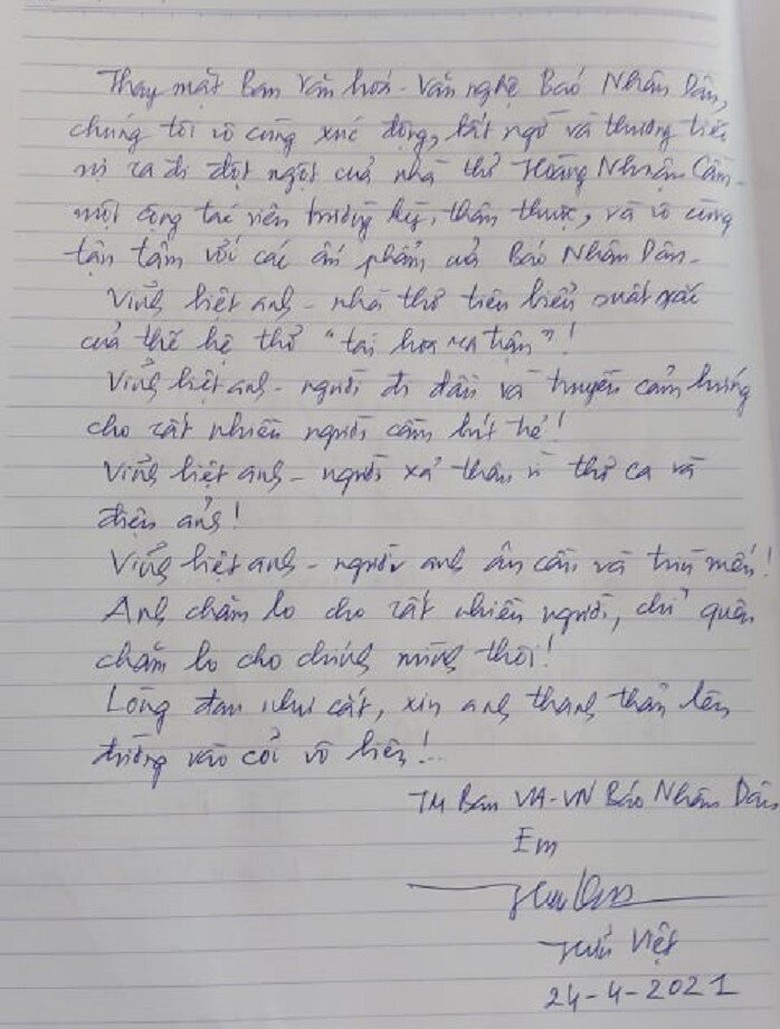 Thay mặt Ban Văn hoá - Văn nghệ Báo Nhân Dân,
chúng tôi vô cùng xúc động, bất ngờ và thương tiếc
vì ra đi đột ngột của nhà thơ Hoàng Nhuận Cầm -
một cộng tác viên trường kỳ, thân thuộc, và vô cùng
tận tâm với các ấn phẩm của Báo Nhân Dân.
Vĩnh biệt anh - nhà thơ tiêu biểu xuất sắc
của thế hệ thơ "tài hoa ra trận"!
Vĩnh biệt anh - người đi đầu và truyền cảm hứng
cho rất nhiều người cầm bút trẻ!
Vĩnh biệt anh - người xả thân vì thơ ca và
điện ảnh!
Vĩnh biệt anh - người anh ân cần và trìu mến!
Anh chăm lo cho rất nhiều người, chỉ quên
chăm lo cho chính mình thôi!
Lòng đau như cắt, xin anh thanh thản lên
đường vào cõi vô biên!...
TM Ban VH-VN Báo Nhân Dân
Em
Hữu Việt
24-4-2021